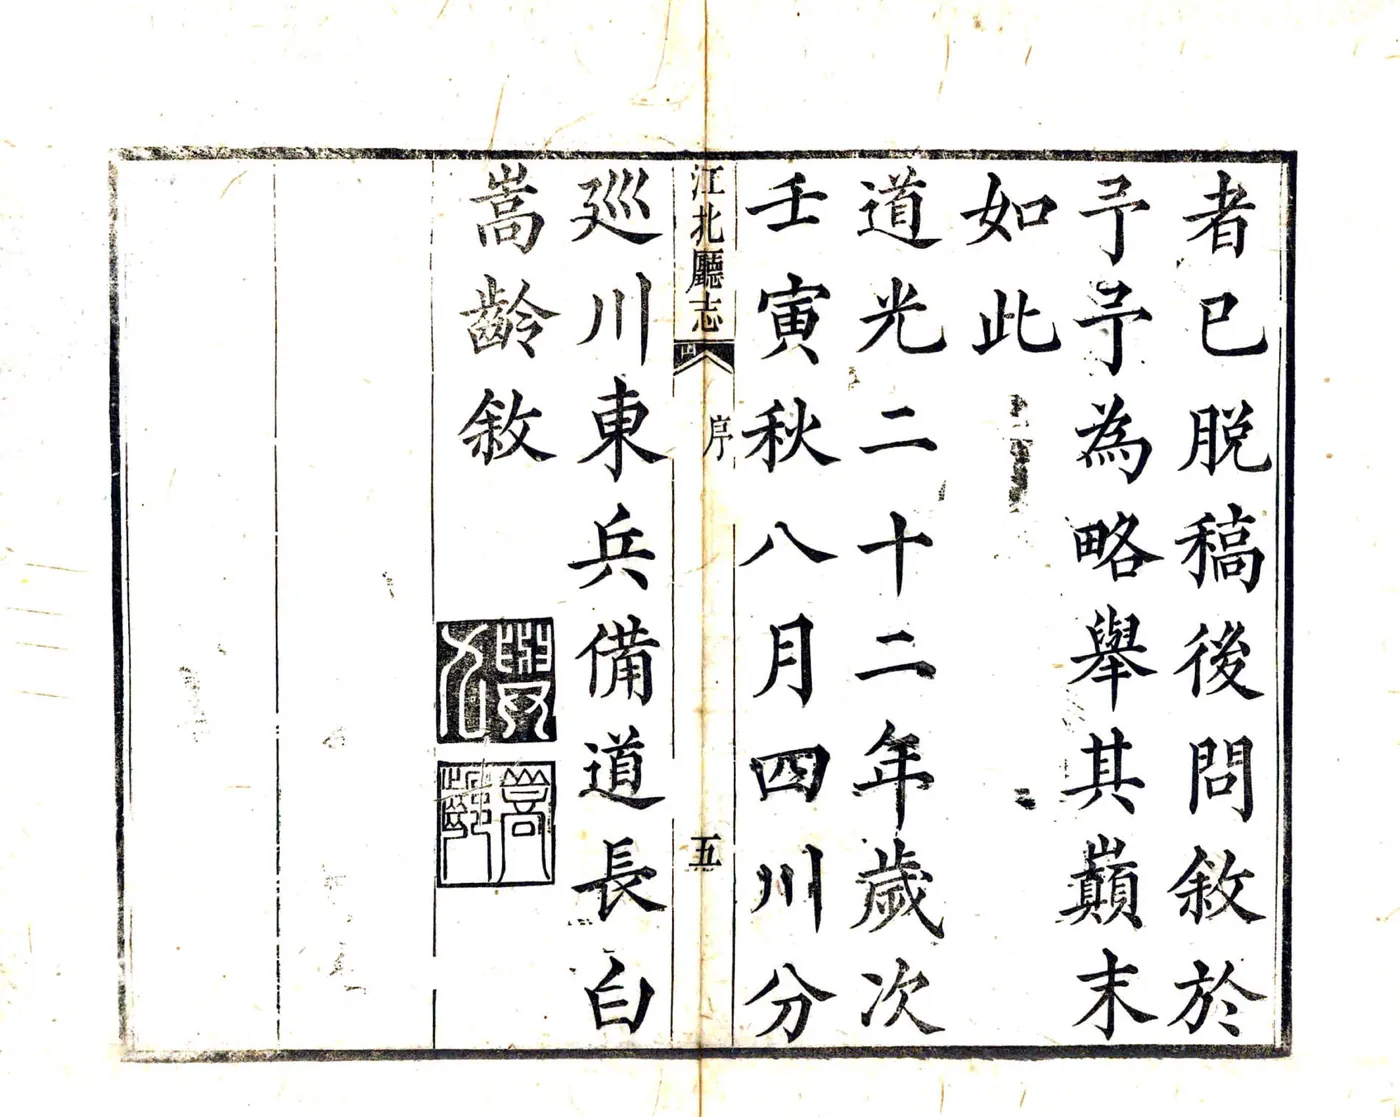 者已脱稿後問敘於
予予為略舉其巔末
如此
道光二十二年歲次
壬寅秋八月四川分
江北廳志
序
五
廵川東兵備道長白
嵩齡敘
嵩齡